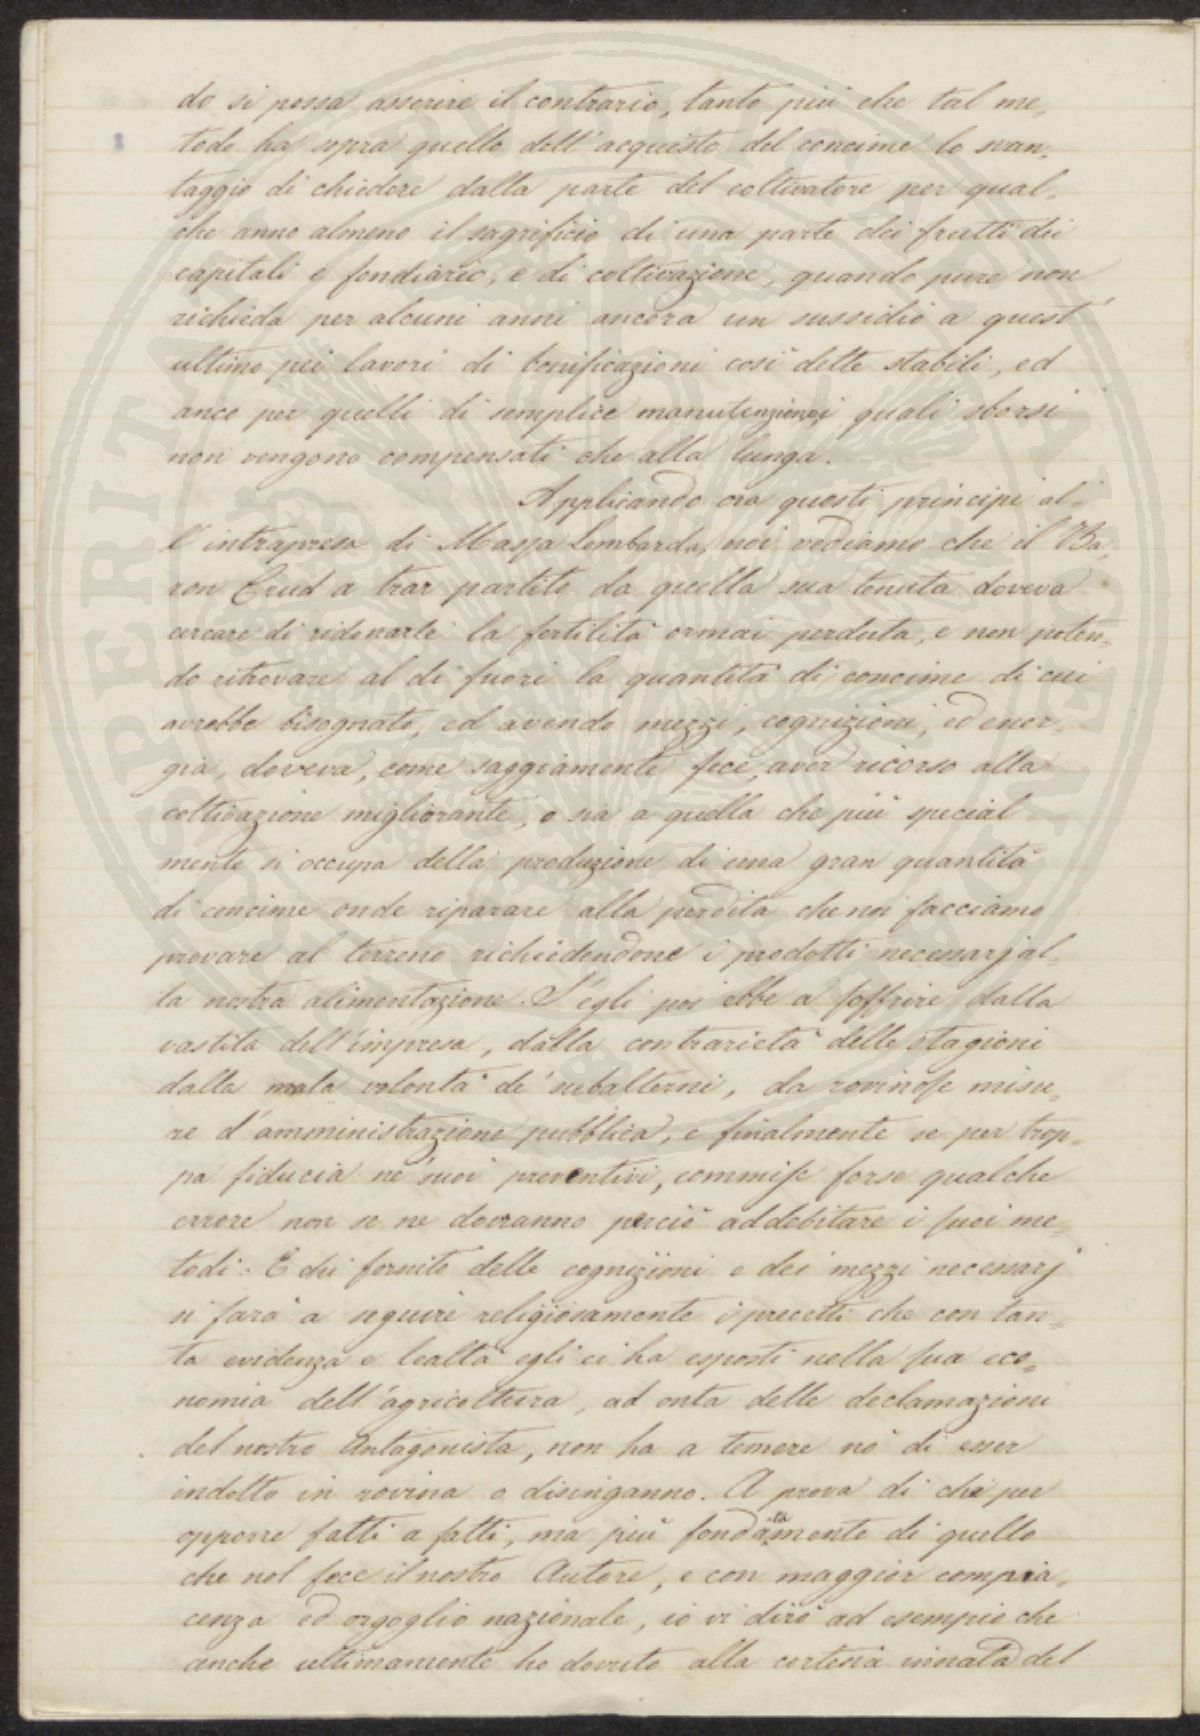 do si possa asserire il contrario, tanto più che tal me„
todo ha sopra quello dell'acquisto del concime lo svan„
taggio di chiedere dalla parte del coltivatore per qual„
che anno almeno il sagrificio di una parte dei frutti dei
capitali e fondiario, e di coltivazione, quando pure non
richieda per alcuni anni ancora un sussidio a quest'
ultimo pei lavori di bonificazioni così dette stabili, ed
anco per quelli di semplice manutenzione, i quali sborsi
non vengono compensati che alla lunga.
Applicando ora questi principi al„
l'intrapresa di Massa Lombarda, noi vediamo che il Ba„
ron Crud a trar partito da quella sua tenuta doveva
cercare di ridonarle la fertilità ormai perduta, e non poten„
do ritrovare al di fuori la quantità di concime di cui
avrebbe bisognato, ed avendo mezzi, cognizioni, ed ener„
gia, doveva, come saggiamente fece, aver ricorso alla
coltivazione migliorante, o sia a quella che più special„
mente si occupa della produzione di una gran quantità
di concime onde riparare alla perdita che noi facciamo
provare al terreno richiedendone i prodotti necessarj al„
la nostra alimentazione. S'egli poi ebbe a soffrire dalla
vastità dell'impresa, dalla contrarietà delle stagioni
dalla mala volontà de' subalterni, da rovinose misu„
re d'amministrazione pubblica, e finalmente se per trop„
pa fiducia ne' suoi preventivi, commise forse qualche
errore non se ne dovranno perciò addebitare i suoi me„
todi. E chi fornito delle cognizioni e dei mezzi necessarj
si farà a seguire religiosamente i precetti che con tan„
ta evidenza e lealtà egli ci ha esposti nella sua eco„
nomia dell'agricoltura, ad onta delle declamazioni
del nostro Antagonista, non ha a temere nò di esser
indotto in rovina o disinganno. A prova di che per
opporre fatti a fatti, ma più fondatamente di quello
che nol fece il nostro Autore, e con maggior compia„
cenza ed orgoglio nazionale, io vi dirò ad esempio che
anche ultimamente ho dovuto alla cortesia innata del
OSPERITÀ
PUBLIC